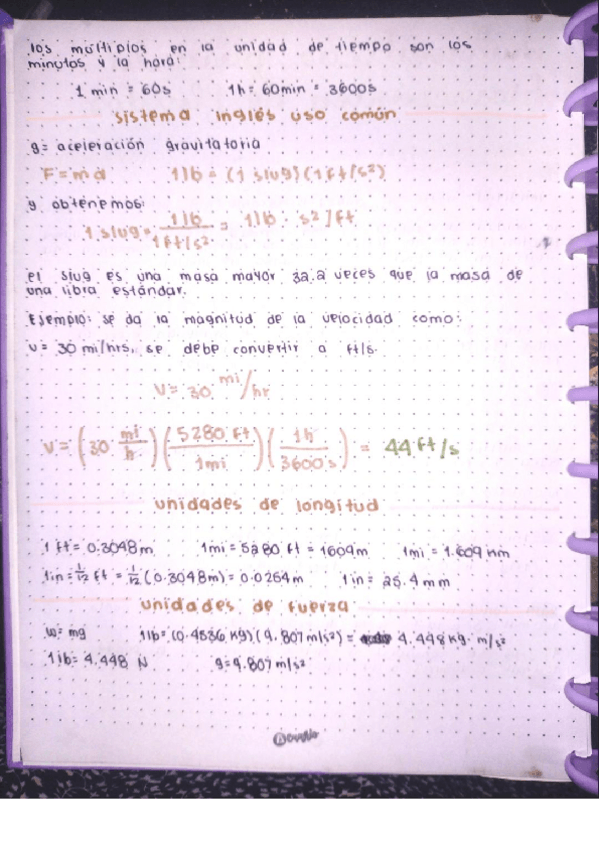 los múltiplos en la unidad de tiempo son los
minutos y la hora:
1 min = 60s 1h = 60min = 3600s
sistema inglés uso común
g= aceleración gravitatoria
F=ma 1lb = (1 slug)(1ft/s²)
y obtenemos:
1 slug = 1lb / 1ft/s² = 1lb · s²/ft
el slug es una masa mayor 32.2 veces que la masa de
una libra estándar.
Ejemplo: se da la magnitud de la velocidad como:
v = 30 mi/hrs, se debe convertir a ft/s.
v = 30 mi/hr
v = (30 mi/h) (5280 ft/1mi) (1h/3600s) = 44 ft/s
unidades de longitud
1 ft = 0.3048m 1mi = 5280 ft = 1609m 1mi = 1.609 km
1in = 1/12 ft = 1/12 (0.3048m) = 0.0254m 1in = 25.4 mm
unidades de fuerza
w= mg 1lb = (0.4536 kg)(9.807 m/s²) = 4.448 kg · m/s²
1lb = 4.448 N g = 9.807 m/s²